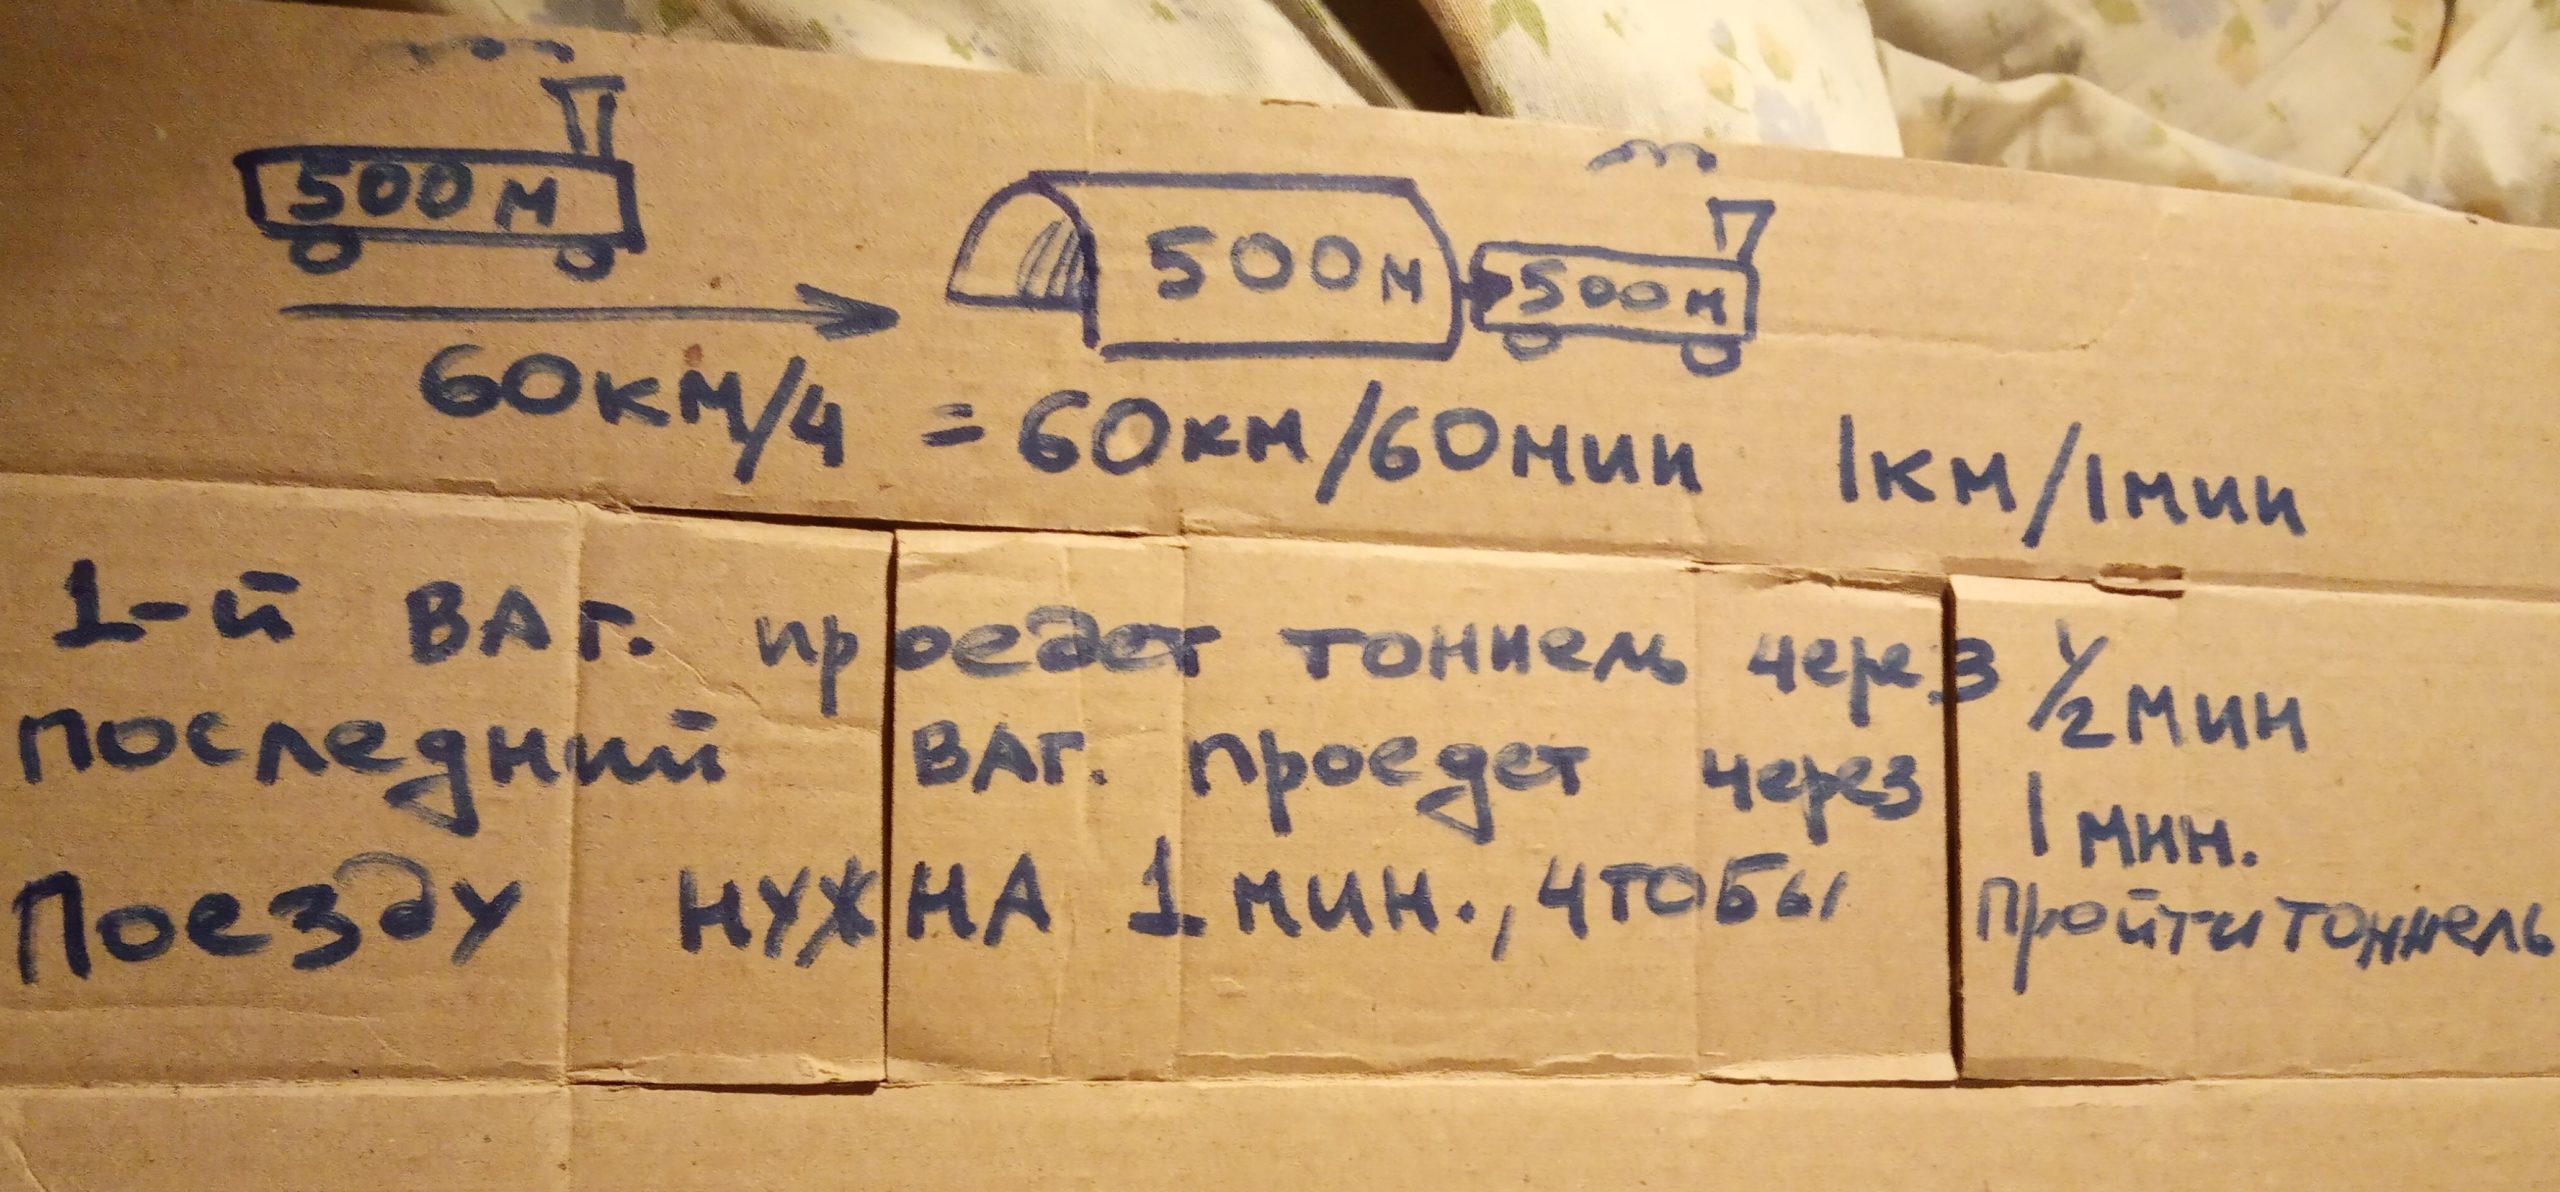 500 м
500 м 500 м
60 км/ч = 60 км/60 мин 1 км/1 мин
1-й ваг. проедет тоннель через 1/2 мин
последний ваг. проедет через 1 мин.
Поезду нужна 1 мин., чтобы пройти тоннель